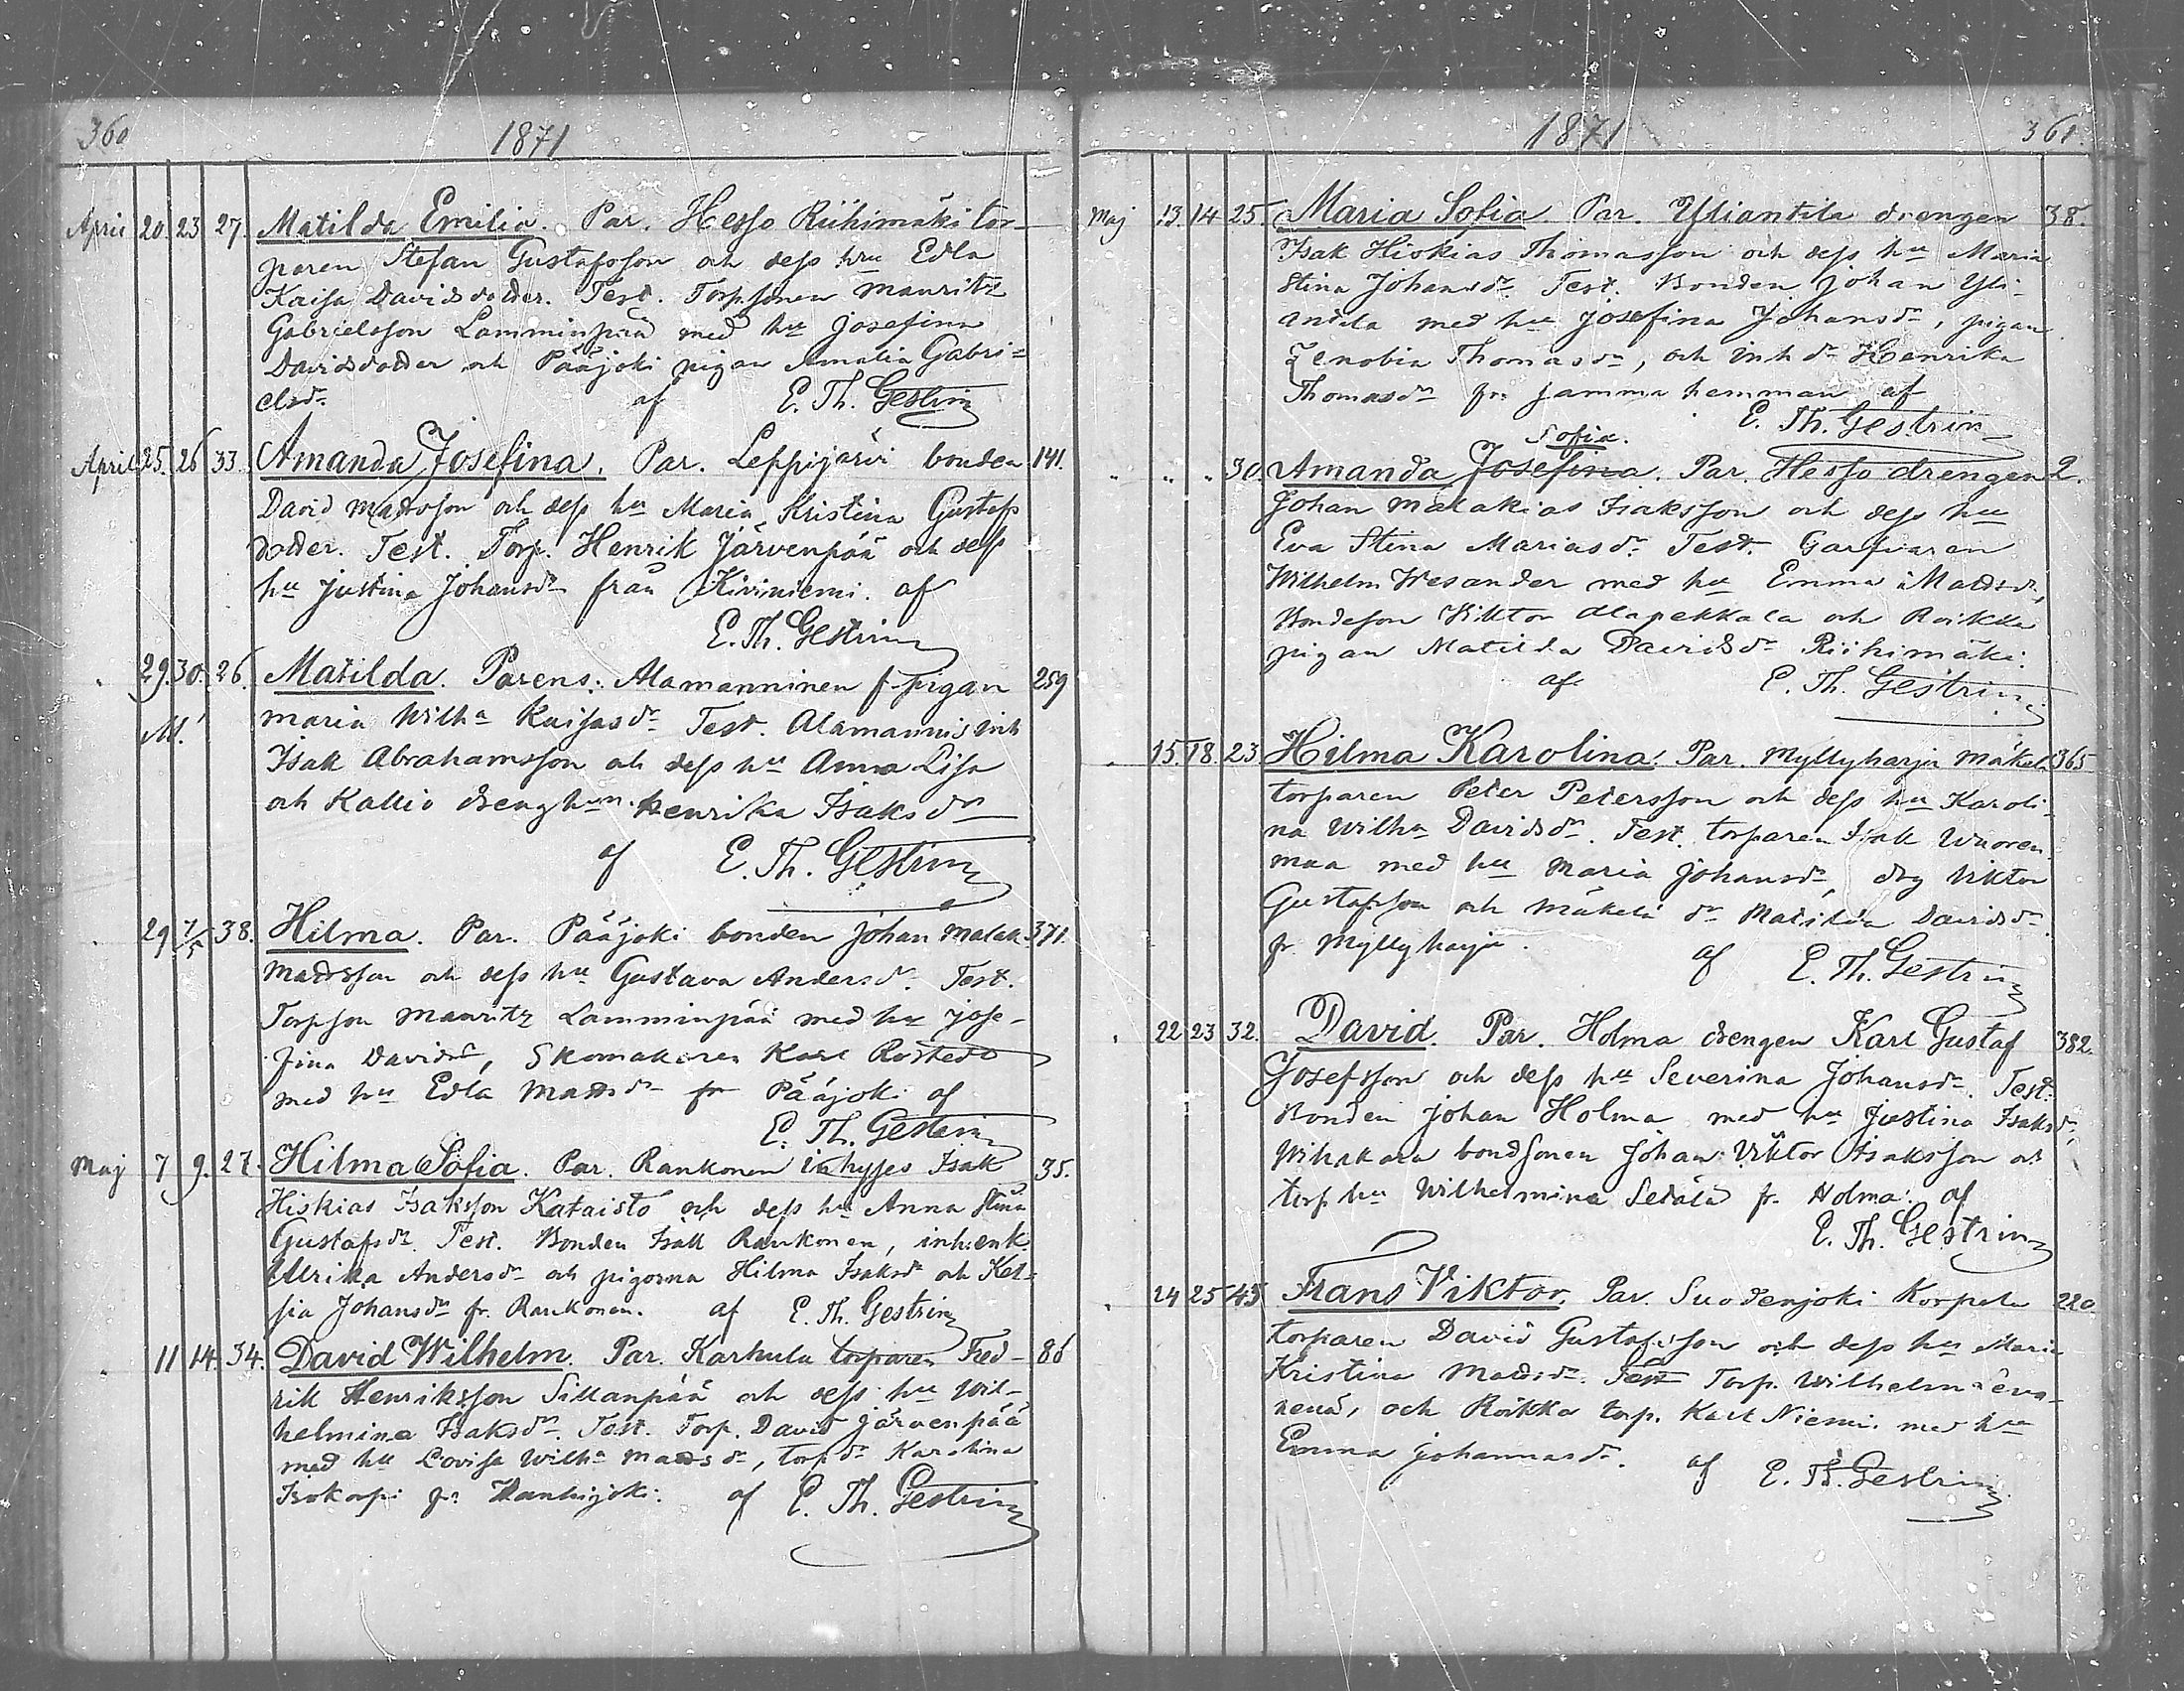 360
1871
April 20. 23 27. Matilda Emilia. Par. Hesso Riihimäki tor-
paren Stefan Gustafsson och dess hru Edla
Kaisa Davidsdotter. Test. Torpsonen Mauritz
Gabrielsson Lamminpää med hu Josefina
Davidsdotter och Pääjoki pigan Amalia Gabri=
elsdr. af E. Th. Gestrin
April 25. 26 33. Amanda Josefina. Par. Leppijärvi bonden 141.
David Mattsson och dess hu Maria Kristina Gustafs
dotter. Test. Torp. Henrik Järvenpää och dess
hu Justina Johansdr från Kiviniemi. af
E. Th. Gestrin
" 29. 30. 26. Matilda. Parens: Alamanninen f. pigan 259
M. Maria Wilha Kaisasdr Test. Alamannis inh
Isak Abrahamsson och dess hu Anna Lisa
och Kallio drenghun. Henrika Isaksdr
af E. Th. Gestrin
" 29 7/5 38. Hilma. Par. Pääjoki bonden Johan Malak. 371.
Mattsson och dess hu Gustava Andersdr. Test.
Torpson Mauritz Lamminpää med hu Jose-
fina Davidsdr, Skomakaren Karl Rostedt
med hu Edla Mattsdr fr Pääjoki af
E. Th. Gestrin
Maj 7 9. 27. Hilma Sofia. Par. Rankonen inhyses Isak 35.
Hiskias Isaksson Kataisto och dess hu Anna Stina
Gustafsdr. Test. Bonden Isak Rankonen, inh. enk.
Ulrika Andersdr och pigorna Hilma Isaksdr och Kai=
sa Johansdr fr. Rankonen. af E. Th. Gestrin
" 11 14. 34. David Wilhelm. Par. Karhula torparen Fred- 86
rik Henriksson Sillanpää och dess hu Wil-
helmina Isaksdr. Test. Torp. David Järvenpää
med hu Lovisa Wilha Mattsdr, torpdr Karolina
Isokorpi fr. Wanhijoki. af E. Th. Gestrin
1871
361.
Maj 13. 14 25. Maria Sofia Par. Yliantila drengen 38.
Isak Hiskias Thomasson och dess hu Maria
Stina Johansdr. Test. Bonden Johan Yli-
antila med hu Josefina Johansdr, pigan
Zenobia Thomasdr, och inh dr Henrika
Thomasdr fr. samma hemman af
E. Th. Gestrin
Sofia.
" " " 30. Amanda Josefina. Par. Hesso drengen 2.
Johan Malakias Isaksson och dess hu
Eva Stina Mariasdr Test. Garfvaren
Wilhelm Wesander med hu Emma Mattsdr,
Bondeson Viktor Alapekkala och Roikka
pigan Matilda Davidsdr Riihimäki.
af E. Th. Gestrin
" 15. 18. 23 Hilma Karolina. Par. Myllyharju Mäkelä 365
torparen Peter Petersson och dess hu Karoli-
na Wilha Davidsdr. Test. torparen Isak Wuoren-
maa med hu Maria Johansdr, drg Viktor
Gustafsson och Mäkelä dr Matilda Davidsdr.
fr Myllyharju. af E. Th. Gestrin
" 22 23 32. David. Par. Holma drengen Karl Gustaf 382.
Josefsson och dess hu Severina Johansdr. Test.
Bonden Johan Holma med hu Justina Isaksdr,
Wihakara bondsonen Johan Viktor Isaksson och
torp hu Wilhelmina Setälä fr. Holma. af
E. Th. Gestrin
" 24 25 43 Frans Viktor. Par. Suodenjoki Korpela 220.
torparen David Gustafsson och dess hu Maria
Kristina Mattsdr. Test Torp. Wilhelm
och Roikka torp. Karl Niemi med hu
Emma Johannasdr. af E. Th. Gestrin